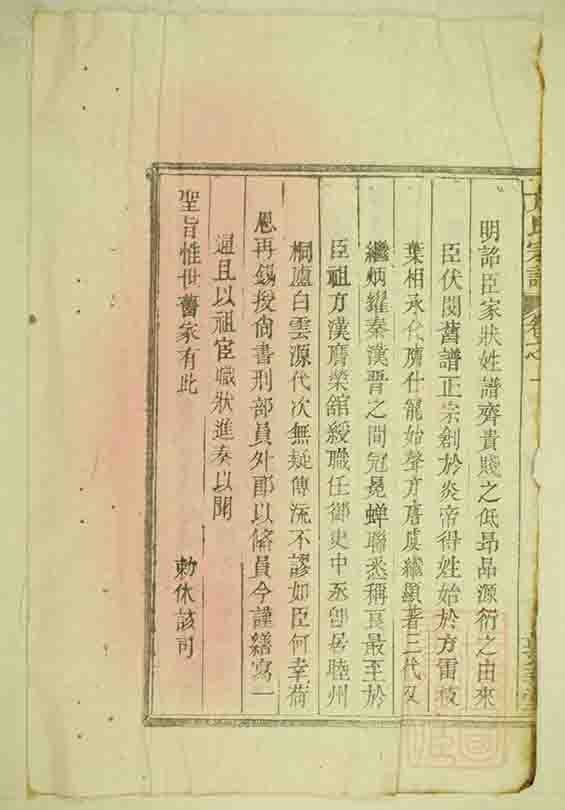 方氏宗譜 卷之一
明詔臣家狀姓譜齊貴賤之低昂品源衍之由來
臣伏閱舊譜正宗創於炎帝得姓始於方雷枝
葉相承代膺仕籠始聲方唐虞繼顯著三代又
繼炳耀秦漢晉之間冠冕蟬聯悉稱良最至於
臣祖方漢膺榮舘綬職任御史中丞卽居睦州
桐廬白雲源代次無疑傳流不謬如臣何幸荷
恩再錫授尙書刑部員外郎以俻員今謹繕寫一
通且以祖宦職狀進奏以聞
聖旨惟世舊家有此 勅休該司